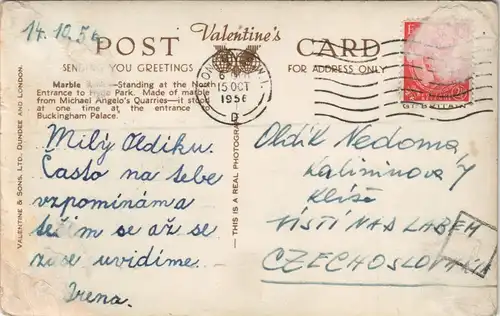 14.10.56
POST Valentine's CARD
SENDING YOU GREETINGS FOR ADDRESS ONLY
Marble Arch—Standing at the North
Entrance to Hyde Park. Made of marble
from Michael Angelo's Quarries—it stood
at one time at the entrance to
Buckingham Palace.
VALENTINE & SONS, LTD., DUNDEE AND LONDON.
THIS IS A REAL PHOTOGRAPH
LONDON W.1.
15 OCT
1956
D
Milý Oldíku.
Často na tebe
vzpomínám a
těším se až se
zase uvidíme.
Irena.
Oldík Nedoma
Kalininova
Klíše
ÚSTÍ NAD LABEM
CZECHOSLOVAKIA